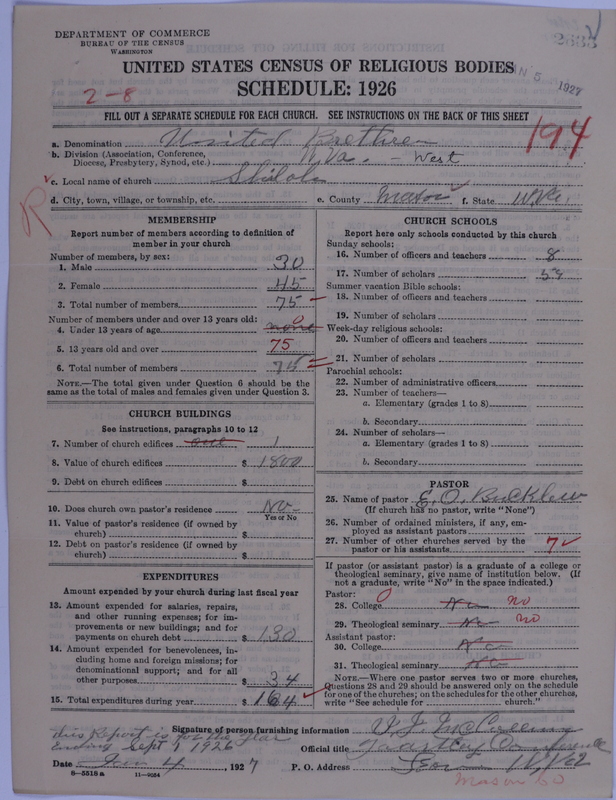 DEPARTMENT OF COMMERCE
BUREAU OF THE CENSUS
WASHINGTON
UNITED STATES CENSUS OF RELIGIOUS BODIES
SCHEDULE: 1926
2-8
FILL OUT A SEPARATE SCHEDULE FOR EACH CHURCH. SEE INSTRUCTIONS ON THE BACK OF THIS SHEET
194
a. Denomination United Brethren
b. Division (Association, Conference, Diocese, Presbytery, Synod, etc.) W. Va. - West
c. Local name of church Shiloh
R
d. City, town, village, or township, etc. e. County Mason f. State W.Va.
MEMBERSHIP
Report number of members according to definition of member in your church
Number of members, by sex:
1. Male 30
2. Female 45
3. Total number of members 75
Number of members under and over 13 years old:
4. Under 13 years of age none 0
5. 13 years old and over 75
6. Total number of members 75
NOTE.—The total given under Question 6 should be the same as the total of males and females given under Question 3.
CHURCH BUILDINGS
See instructions, paragraphs 10 to 12
7. Number of church edifices one 1
8. Value of church edifices $ 1800
9. Debt on church edifices $
10. Does church own pastor's residence No
Yes or No
11. Value of pastor's residence (if owned by church) $
12. Debt on pastor's residence (if owned by church) $
EXPENDITURES
Amount expended by your church during last fiscal year
13. Amount expended for salaries, repairs, and other running expenses; for improvements or new buildings; and for payments on church debt $ 130
14. Amount expended for benevolences, including home and foreign missions; for denominational support; and for all other purposes $ 34
15. Total expenditures during year $ 164
CHURCH SCHOOLS
Report here only schools conducted by this church
Sunday schools:
16. Number of officers and teachers 8
17. Number of scholars
Summer vacation Bible schools:
18. Number of officers and teachers
19. Number of scholars
Week-day religious schools:
20. Number of officers and teachers
21. Number of scholars
Parochial schools:
22. Number of administrative officers
23. Number of teachers—
a. Elementary (grades 1 to 8)
b. Secondary
24. Number of scholars—
a. Elementary (grades 1 to 8)
b. Secondary
PASTOR
25. Name of pastor E. O. Bucklew
(If church has no pastor, write "None")
26. Number of ordained ministers, if any, employed as assistant pastors
27. Number of other churches served by the pastor or his assistants 7
If pastor (or assistant pastor) is a graduate of a college or theological seminary, give name of institution below. (If not a graduate, write "No" in the space indicated.)
Pastor:
28. College No no
29. Theological seminary No no
Assistant pastor:
30. College No
31. Theological seminary No
NOTE.—Where one pastor serves two or more churches, Questions 28 and 29 should be answered only on the schedule for one of the churches; on the schedules for the other churches, write "See schedule for church."
this Report is for the year
Ending Sept 1, 1926
Signature of person furnishing information
Official title Conference
Date Jan 4, 1927 P. O. Address Leon W. Va
8-5518a 11-9054
Mason Co